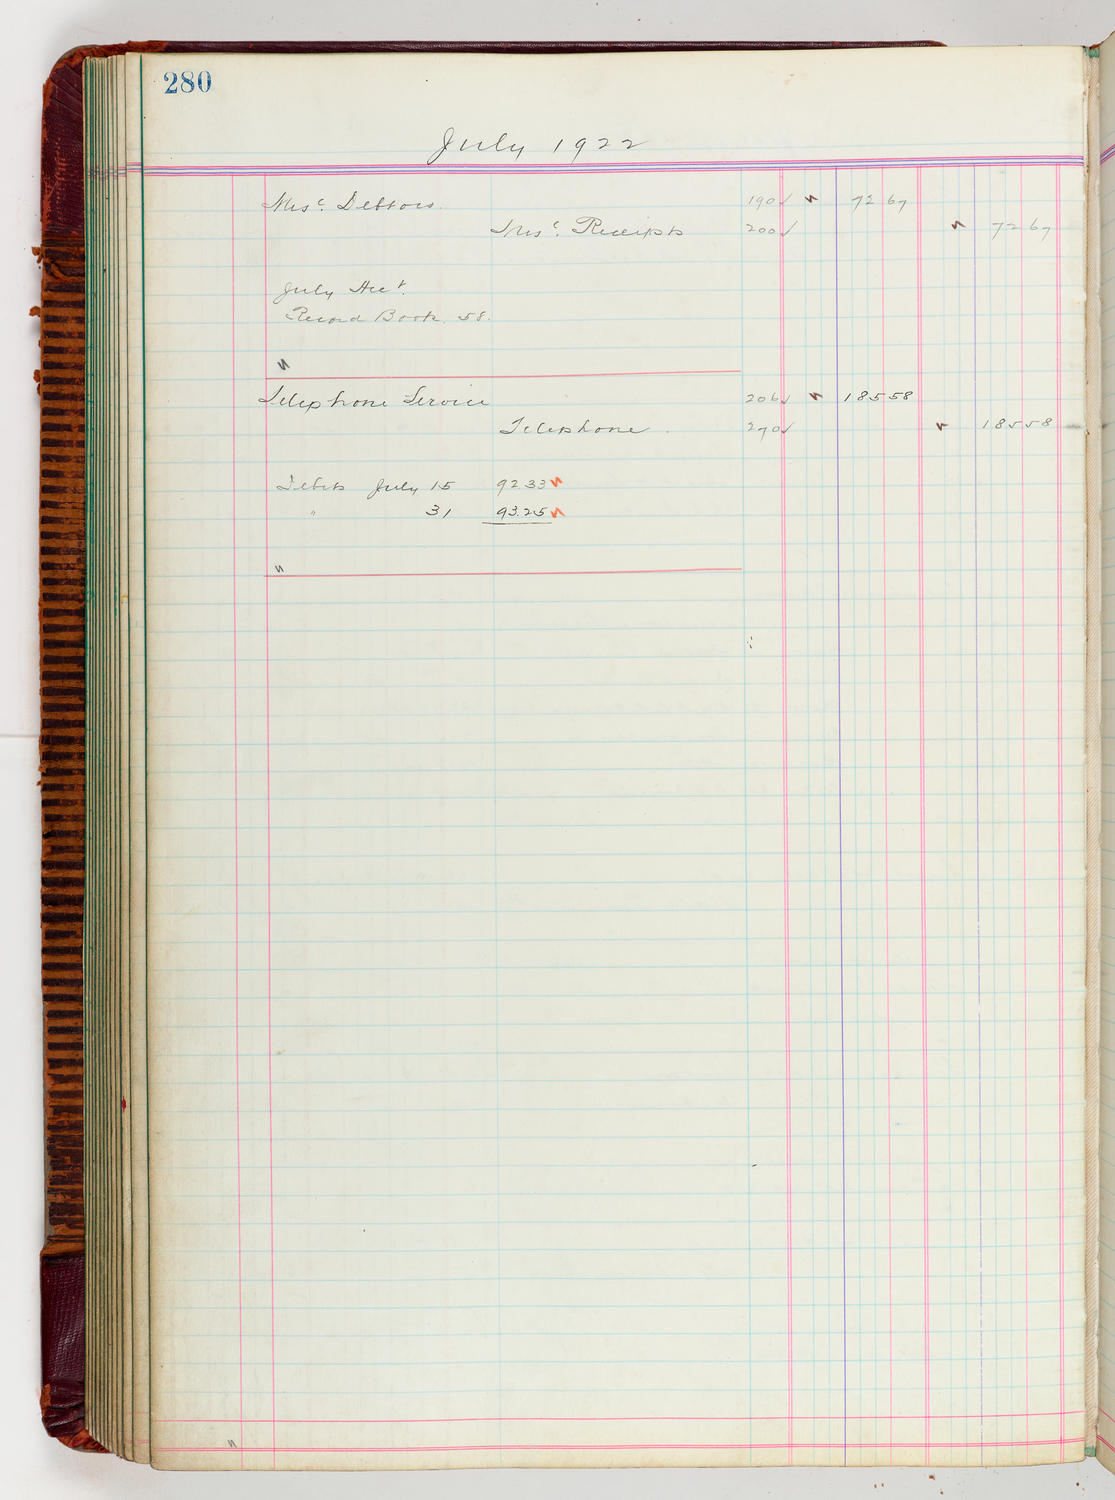 280
July 1922
Misc. Debtors. 190 ✓ 72 67
Misc. Receipts 200 ✓ 72 67
July Acct.
Record Book 58.
Telephone Service 206 ✓ 185 58
Telephone. 270 ✓ 185 58
Debts July 15 92.33
" 31 93.25